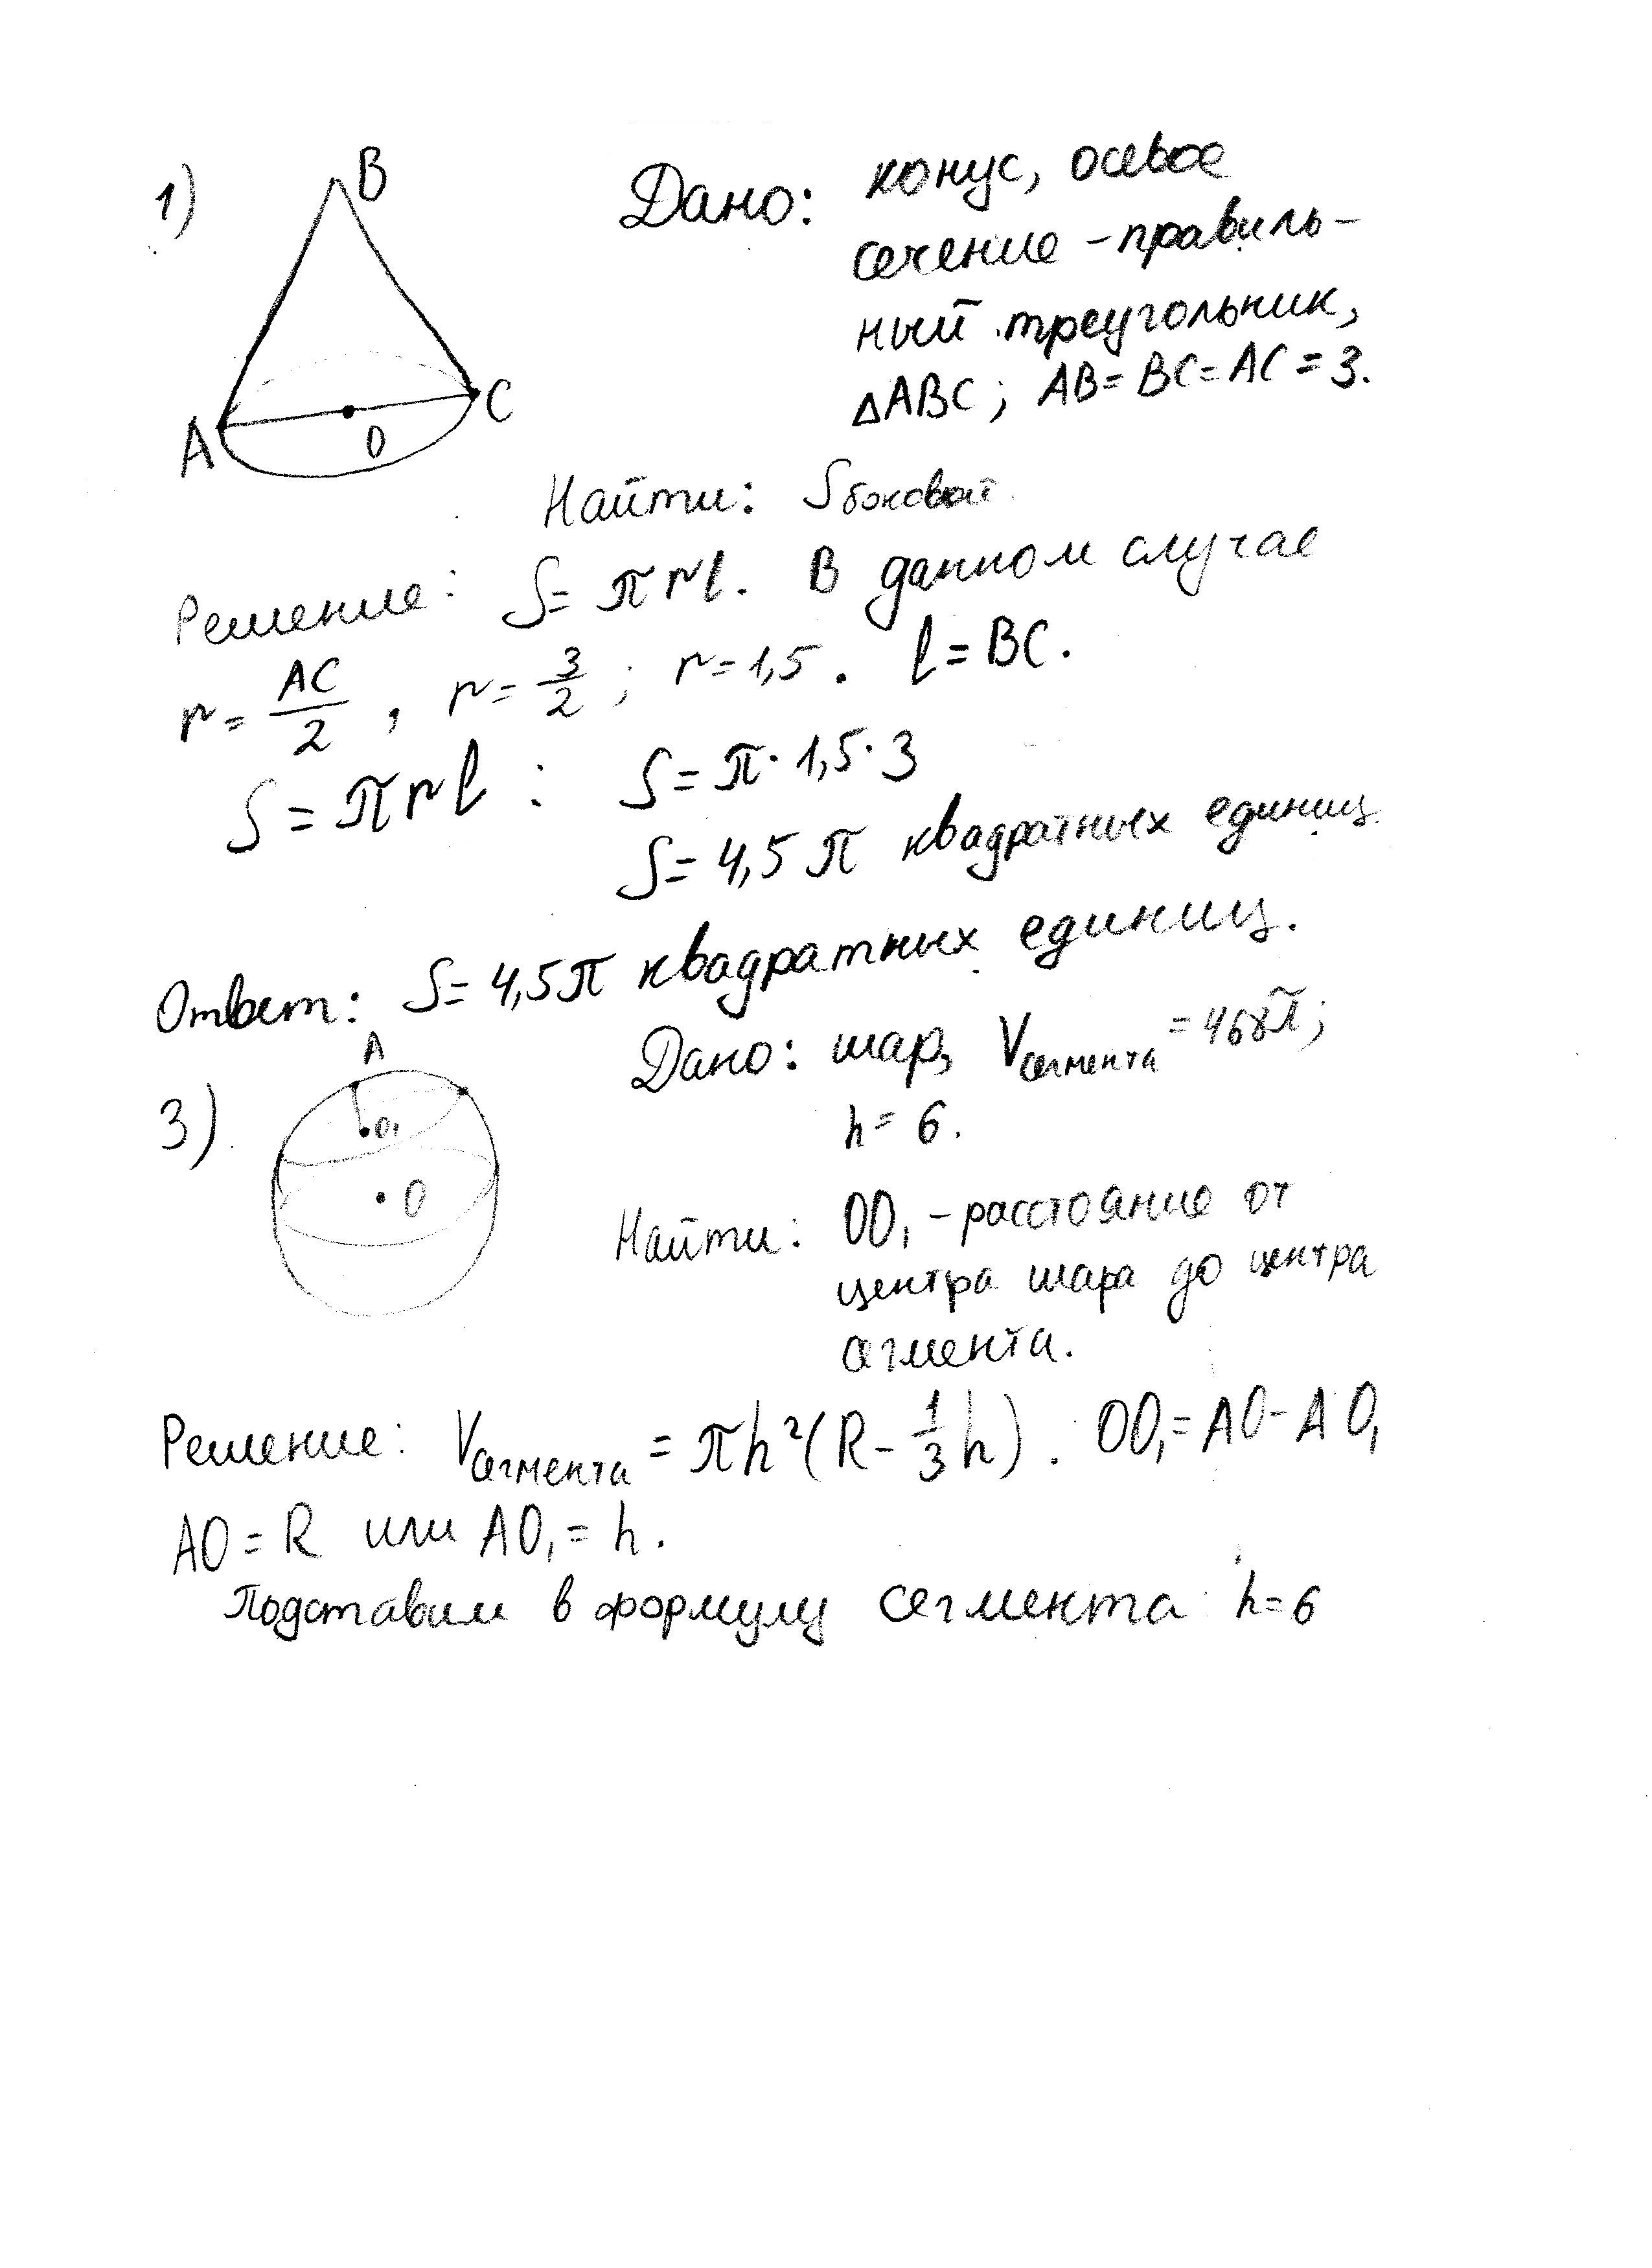 1)
B
A
C
O
Дано: конус, осевое
сечение - правиль-
ный треугольник,
△ABC; AB = BC = AC = 3.
Найти: Sбоковой.
Решение: S = πrl. В данном случае
r = AC/2, r = 3/2; r = 1,5. l = BC.
S = πrl : S = π · 1,5 · 3
S = 4,5 π квадратных единиц.
Ответ: S = 4,5π квадратных единиц.
3)
A
O₁
O
Дано: шар, Vсегмента = 468π;
h = 6.
Найти: OO₁ - расстояние от
центра шара до центра
сегмента.
Решение: Vсегмента = πh²(R - 1/3 h). OO₁ = AO - AO₁
AO = R или AO₁ = h.
Подставим в формулу сегмента h = 6